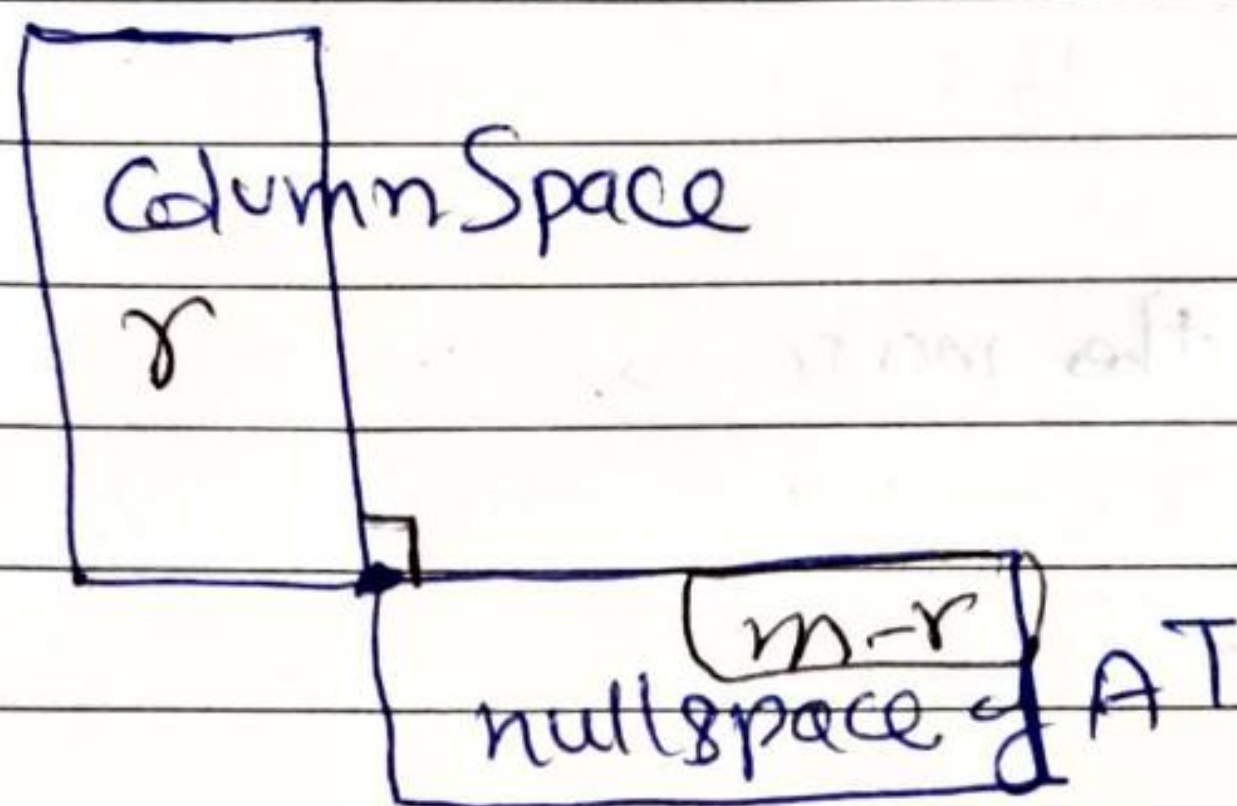 Column Space
r
m-r
nullspace of A^T